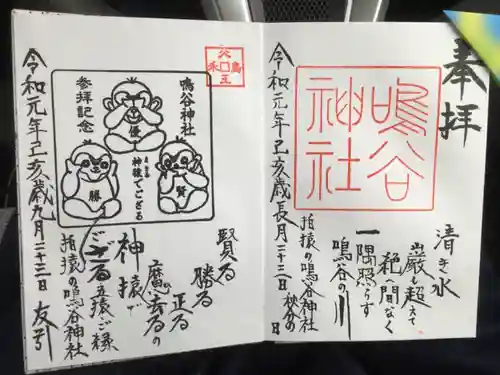 奉拝
鳴谷
神社
清き水
巌も超えて
絶間なく
一隅照らす
鳴谷の川
拍猿の鳴谷神社
秋分の日
令和元年己亥歳長月二十三日
参拝記念
鳴谷神社
優
勝
賢
神猿でござる
賢る
勝る
正る
魔去るの
神猿で
ござる
立猿ご様
拍猿の鳴谷神社
令和元年己亥歳九月二十三日